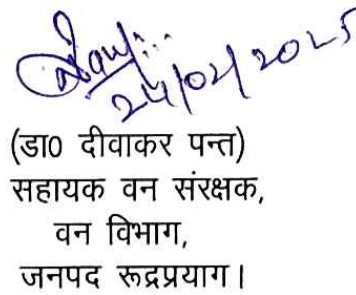 24/02/2025
(डा0 दीवाकर पन्त)
सहायक वन संरक्षक,
वन विभाग,
जनपद रूद्रप्रयाग।